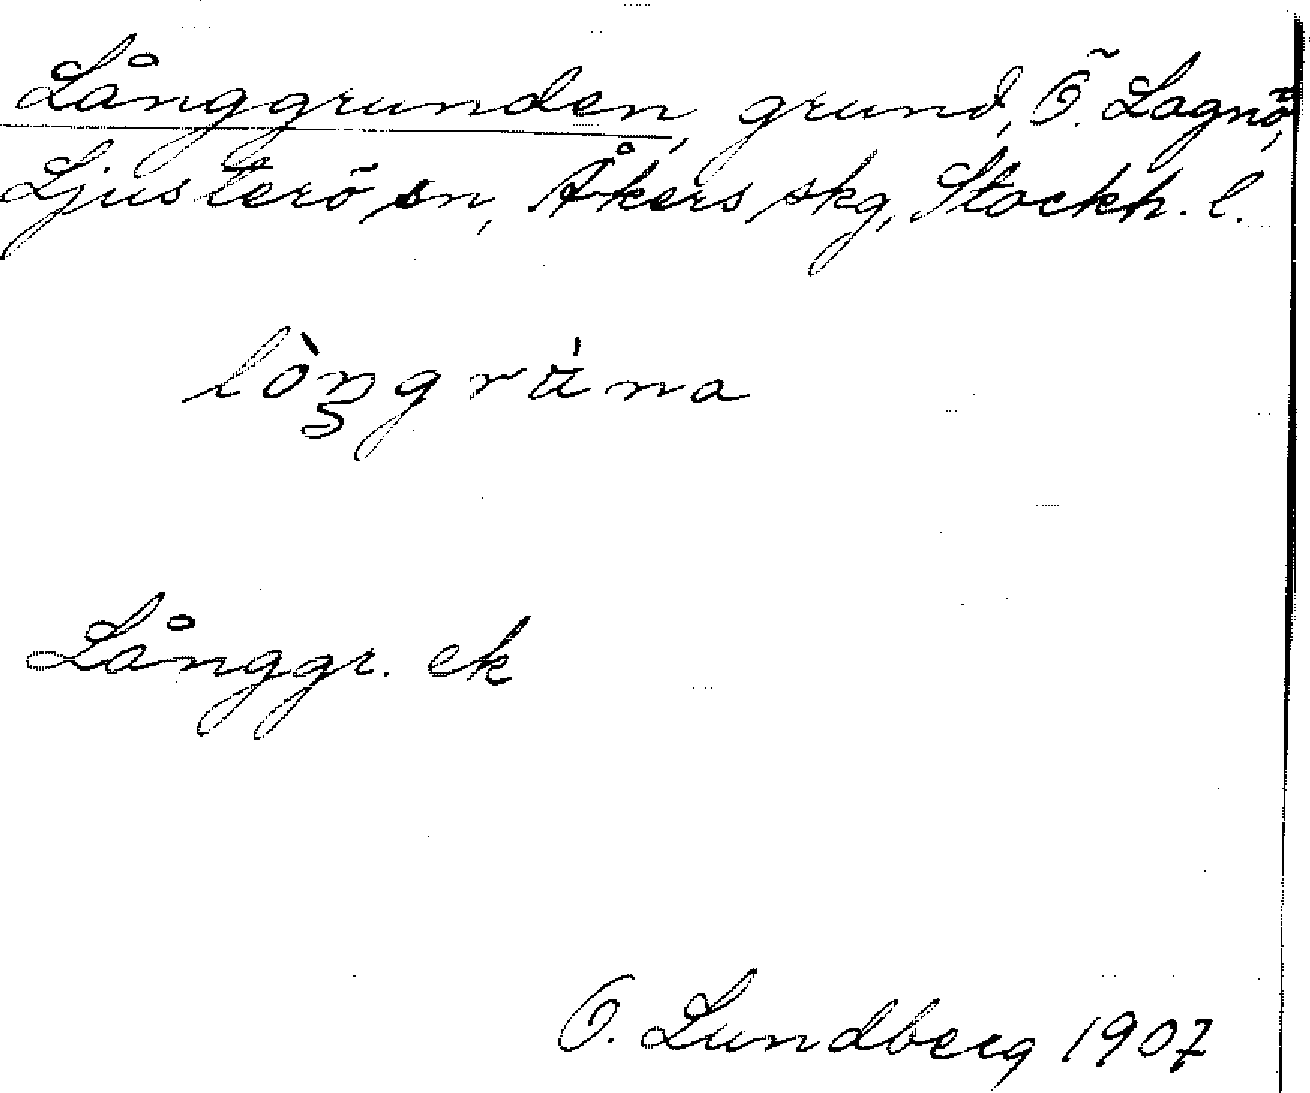 Långgrunden, grund, Ö. Lagnö,
Ljusterö sn, Åkers skg, Stockh. l.
lòŋgrána
Långgr. ek
O. Lundberg 1907